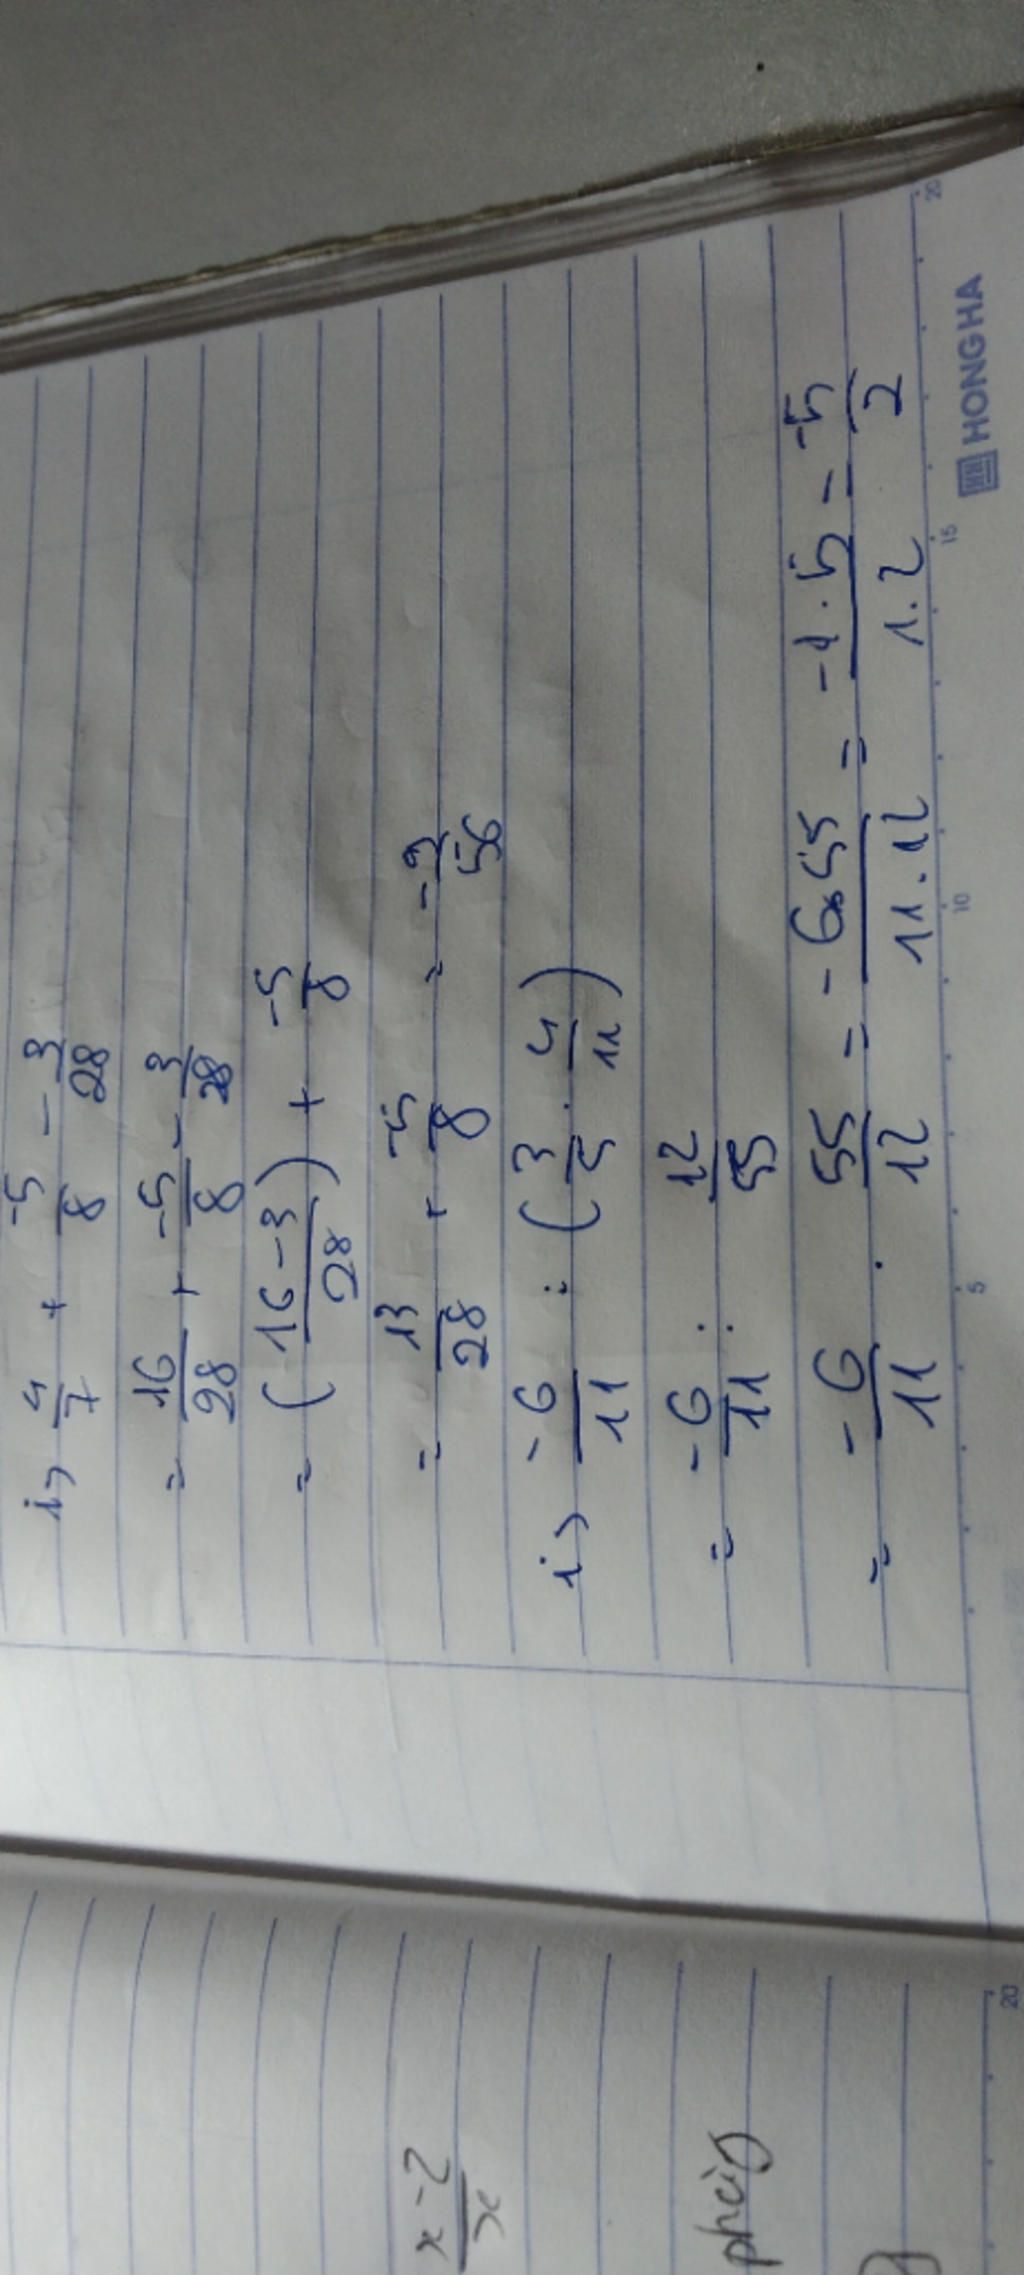 i) 4/7 + -5/8 - 3/28
= 16/28 + -5/8 - 3/28
= (16-3/28) + -5/8
= 13/28 + -5/8 = -9/56
i) -6/11 : (3/5 . 4/11)
= -6/11 : 12/55
= -6/11 . 55/12 = -6.55/11.12 = -1.5/1.2 = -5/2
5 10 15 20
HONG HA
x-2/x
phải
20